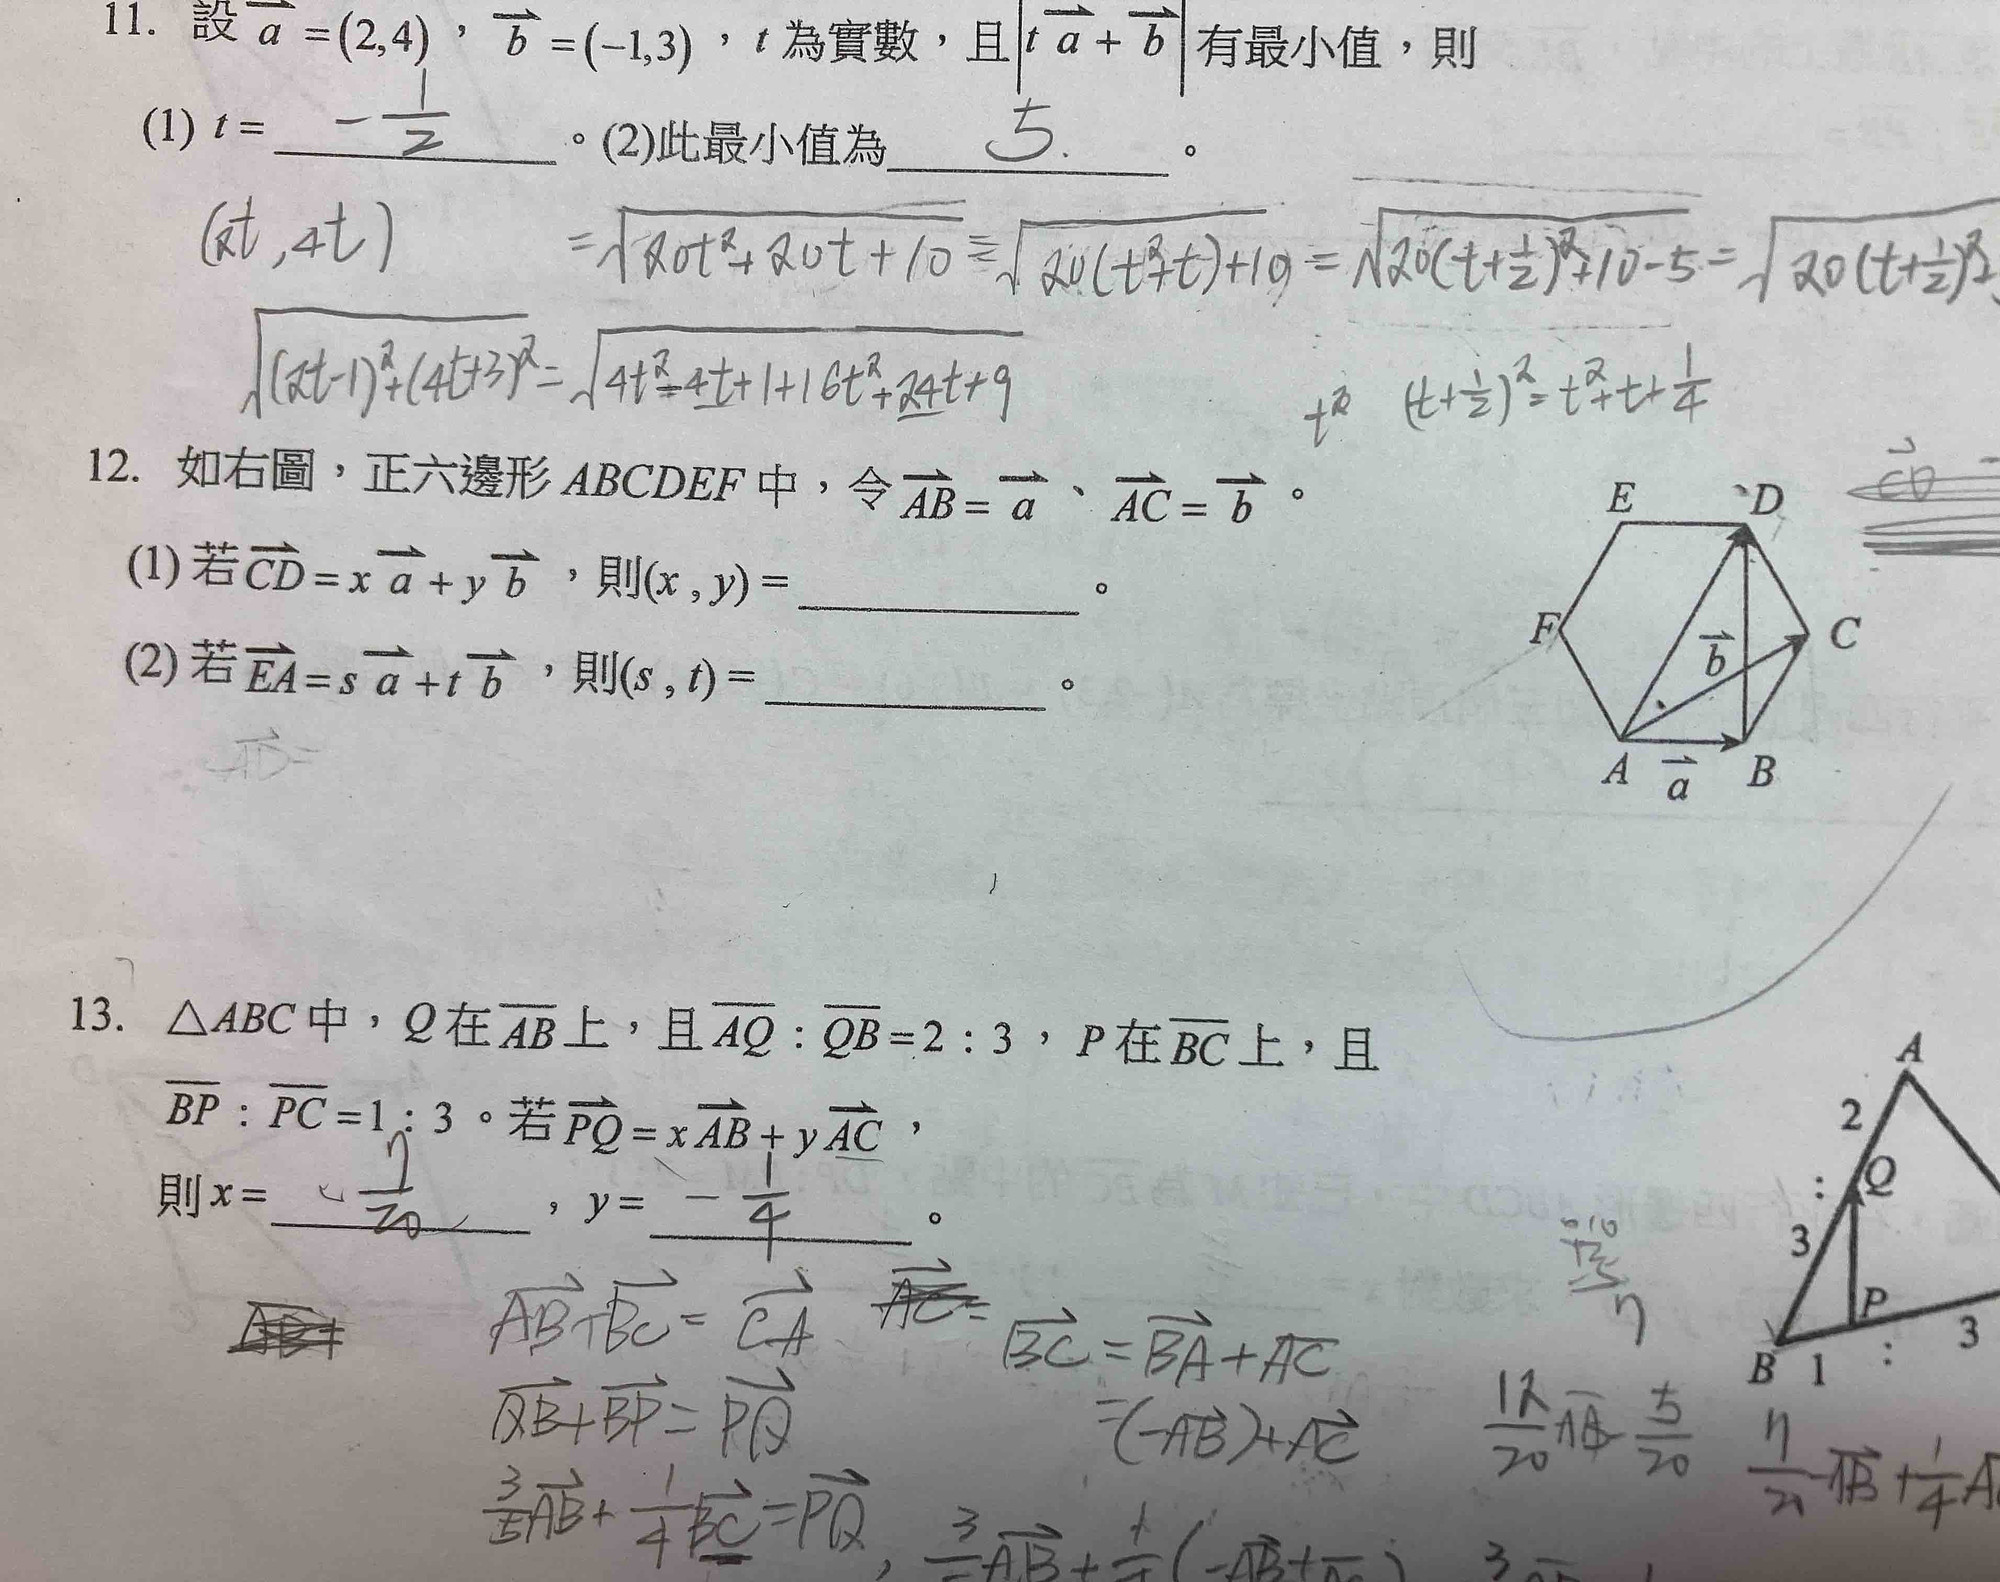 11. 設 a = (2,4)，b = (−1,3)，t 為實數，且|t a + b|有最小值，則
(1) t = −1/2 。(2)此最小值為 5. 。
(2t,4t) =√(20t²+20t+10) =√(20(t²+t)+10) = √(20(t+1/2)²+10-5 = √(20(t+1/2)²+
√((2t-1)²+(4t+3)² = √(4t²-4t+1+16t²+24t+9
t² (t+1/2)² = t²+t+1/4
12. 如右圖，正六邊形 ABCDEF 中，令 AB = a、AC = b。
CD
(1) 若 CD = x a + y b，則(x , y) = 。
(2) 若 EA = s a + t b，則(s , t) = 。
AD=
E D
F C
b
A a B
13. △ABC 中，Q 在 AB 上，且 AQ : QB = 2 : 3，P 在 BC 上，且
BP : PC = 1 : 3。若 PQ = x AB + y AC，
則 x = 7/20 ，y = −1/4 。
A
2
Q
:
3
P
B 1 : 3
AB+BC = CA AC=
BC = BA + AC
QB+BP = PQ
=(-AB)+AC
12/20 AB - 5/20
3/5 AB + 1/4 BC = PQ